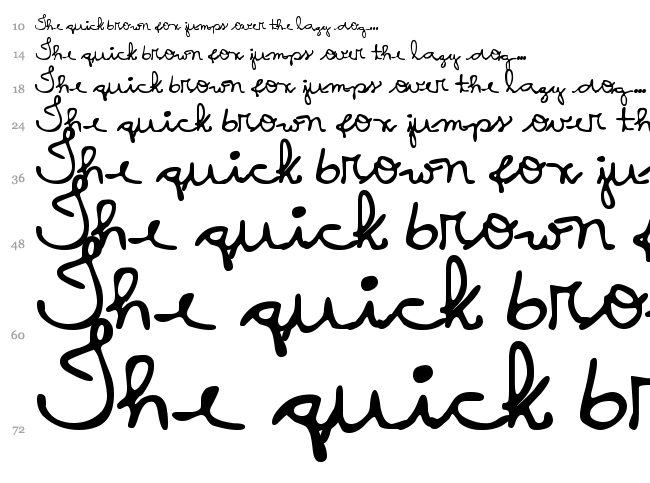 10 The quick brown fox jumps over the lazy dog...
14 The quick brown fox jumps over the lazy dog...
18 The quick brown fox jumps over the lazy dog...
24 The quick brown fox jumps over th
36 The quick brown fox ju
48 The quick brown f
60 The quick bro
72 The quick br